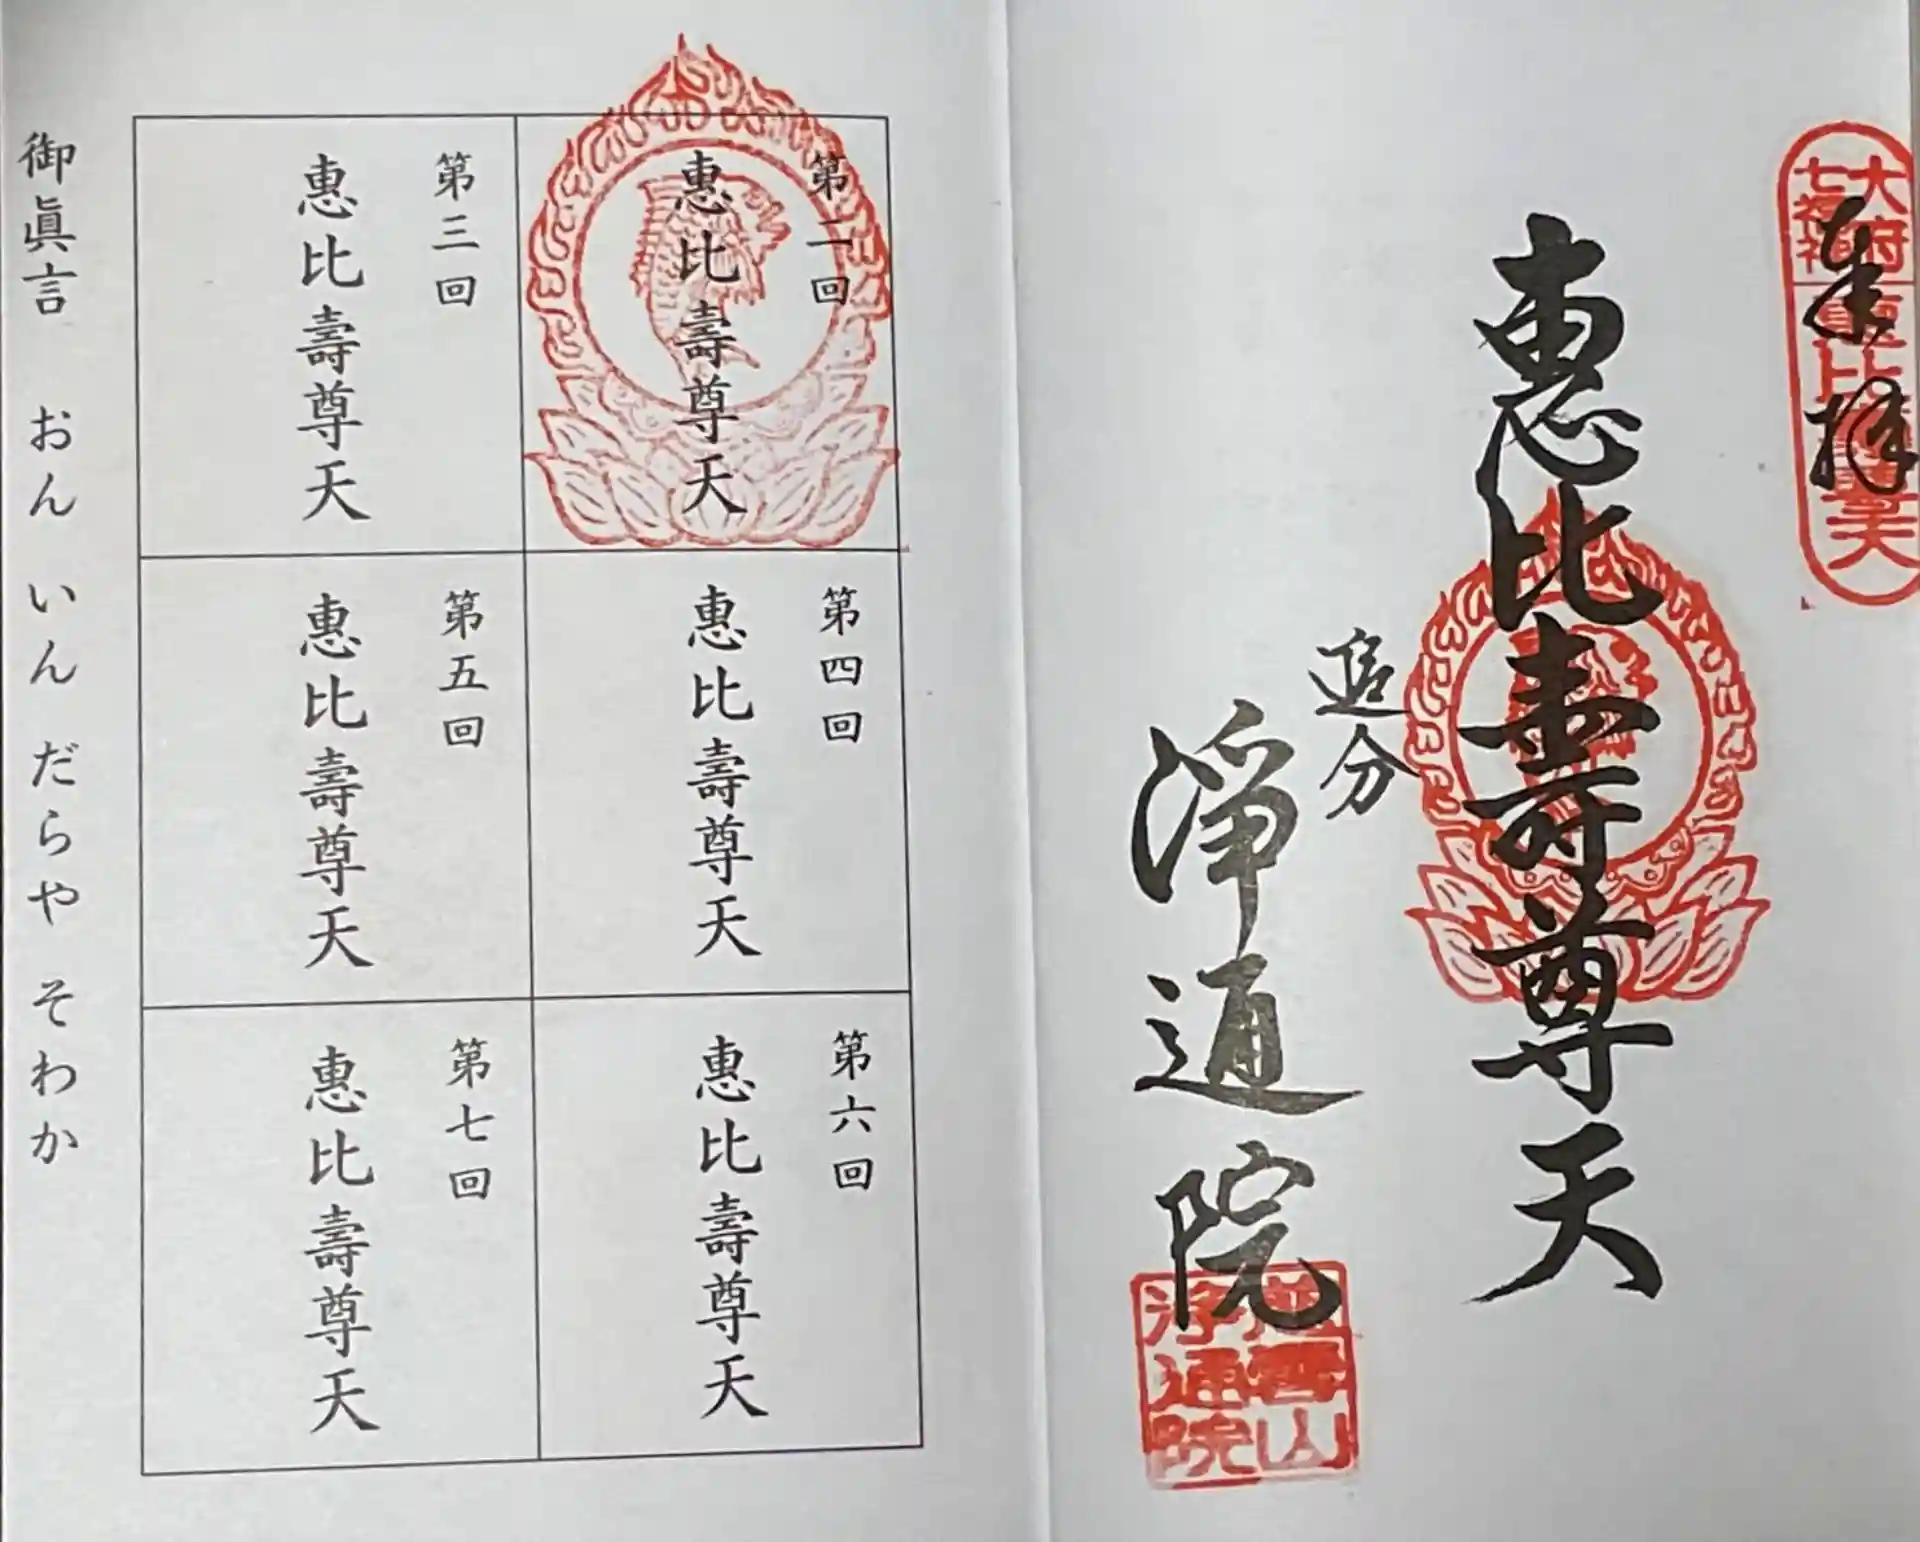 奉拝
大府七福神
恵比壽尊天
惠比壽尊天
追分
淨通院
淨通院
第二回
惠比壽尊天
第三回
惠比壽尊天
第四回
惠比壽尊天
第五回
惠比壽尊天
第六回
惠比壽尊天
第七回
惠比壽尊天
御眞言　おん　いん　だらや　そわか